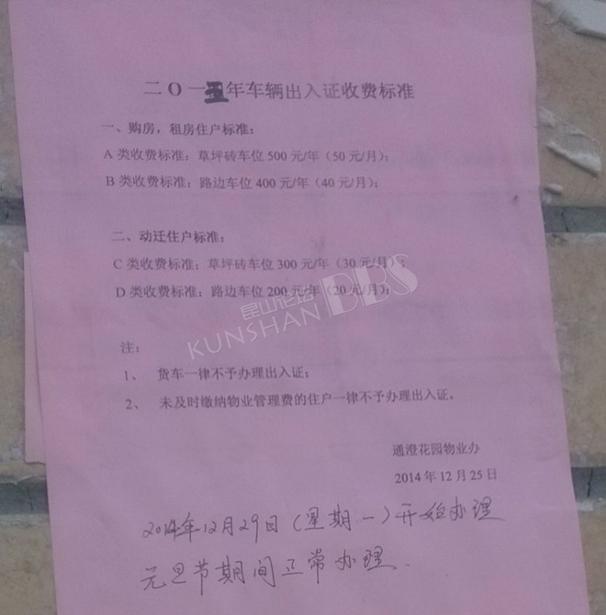 二〇一五年车辆出入证收费标准
一、购房，租房住户标准：
A 类收费标准：草坪砖车位 500 元/年（50 元/月）；
B 类收费标准：路边车位 400 元/年（40 元/月）；
二、动迁住户标准：
C 类收费标准：草坪砖车位 300 元/年（30 元/月）；
D 类收费标准：路边车位 200 元/年（20 元/月）；
昆山论坛 BBS
KUNSHAN
注：
1、 货车一律不予办理出入证；
2、 未及时缴纳物业管理费的住户一律不予办理出入证。
通澄花园物业办
2014 年 12 月 25 日
2014年12月29日（星期一）开始办理
元旦节期间正常办理.